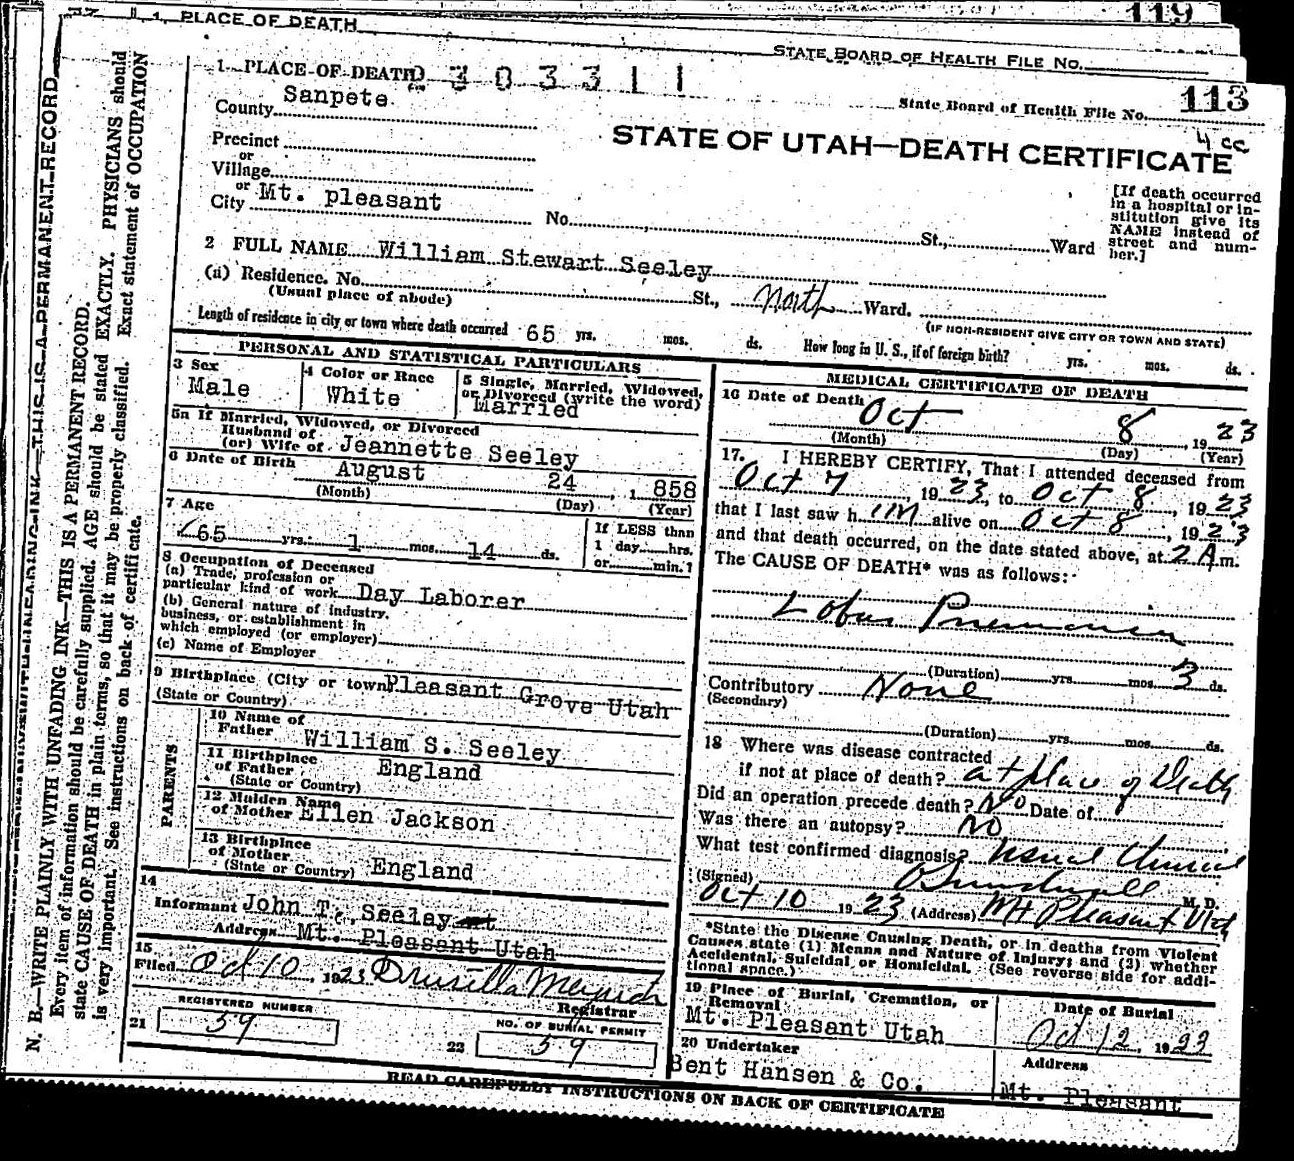 119
1 PLACE OF DEATH
STATE BOARD OF HEALTH FILE No.
1 PLACE OF DEATH 2303311
State Board of Health File No. 113
County Sanpete
4 cc
STATE OF UTAH—DEATH CERTIFICATE
Precinct
or
Village
or
City Mt. pleasant No. St., Ward
[If death occurred
in a hospital or in-
stitution give its
NAME instead of
street and num-
ber.]
2 FULL NAME William Stewart Seeley
(a) Residence. No. St., North Ward.
(Usual place of abode)
(IF NON-RESIDENT GIVE CITY OR TOWN AND STATE)
Length of residence in city or town where death occurred 65 yrs. mos. ds. How long in U. S., if of foreign birth? yrs. mos. ds.
PERSONAL AND STATISTICAL PARTICULARS
3 Sex
Male
4 Color or Race
White
5 Single, Married, Widowed,
or Divorced (write the word)
Married
5a If Married, Widowed, or Divorced
Husband of
(or) Wife of Jeannette Seeley
6 Date of Birth August 24, 1858
(Month) (Day) (Year)
7 Age
65 yrs. 1 mos. 14 ds.
If LESS than
1 day hrs.
or min.?
8 Occupation of Deceased
(a) Trade, profession or
particular kind of work Day Laborer
(b) General nature of industry,
business, or establishment in
which employed (or employer)
(c) Name of Employer
9 Birthplace (City or town) Pleasant Grove Utah
(State or Country)
PARENTS
10 Name of
Father William S. Seeley
11 Birthplace
of Father England
(State or Country)
12 Maiden Name
of Mother Ellen Jackson
13 Birthplace
of Mother
(State or Country) England
14
Informant John T. Seeley
Address Mt. Pleasant Utah
15
Filed Oct 10, 1923 Drusilla
Registrar
REGISTERED NUMBER
21 59
NO. OF BURIAL PERMIT
22 59
MEDICAL CERTIFICATE OF DEATH
16 Date of Death Oct 8, 1923
(Month) (Day) (Year)
17. I HEREBY CERTIFY, That I attended deceased from
Oct 7, 1923, to Oct 8, 1923
that I last saw him alive on Oct 8, 1923
and that death occurred, on the date stated above, at 2 A m.
The CAUSE OF DEATH* was as follows:
Lobar Pneumonia
(Duration) yrs. mos. 3 ds.
Contributory None
(Secondary)
(Duration) yrs. mos. ds.
18 Where was disease contracted
if not at place of death? at place of Death
Did an operation precede death? No Date of
Was there an autopsy? No
What test confirmed diagnosis? Usual Clinical
(Signed) M. D.
Oct 10 1923 (Address) Mt Pleasant Utah
*State the Disease Causing Death, or in deaths from Violent
Causes state (1) Means and Nature of Injury; and (2) whether
Accidental, Suicidal or Homicidal. (See reverse side for addi-
tional space.)
19 Place of Burial, Cremation, or
Removal
Mt. Pleasant Utah
Date of Burial
Oct 12, 1923
20 Undertaker
Bent Hansen & Co.
Address
Mt. Pleasant
READ CAREFULLY INSTRUCTIONS ON BACK OF CERTIFICATE
N. B.—WRITE PLAINLY WITH UNFADING INK—THIS IS A PERMANENT RECORD.
Every item of information should be carefully supplied. AGE should be stated EXACTLY. PHYSICIANS should
state CAUSE OF DEATH in plain terms, so that it may be properly classified. Exact statement of OCCUPATION
is very important. See instructions on back of certificate.